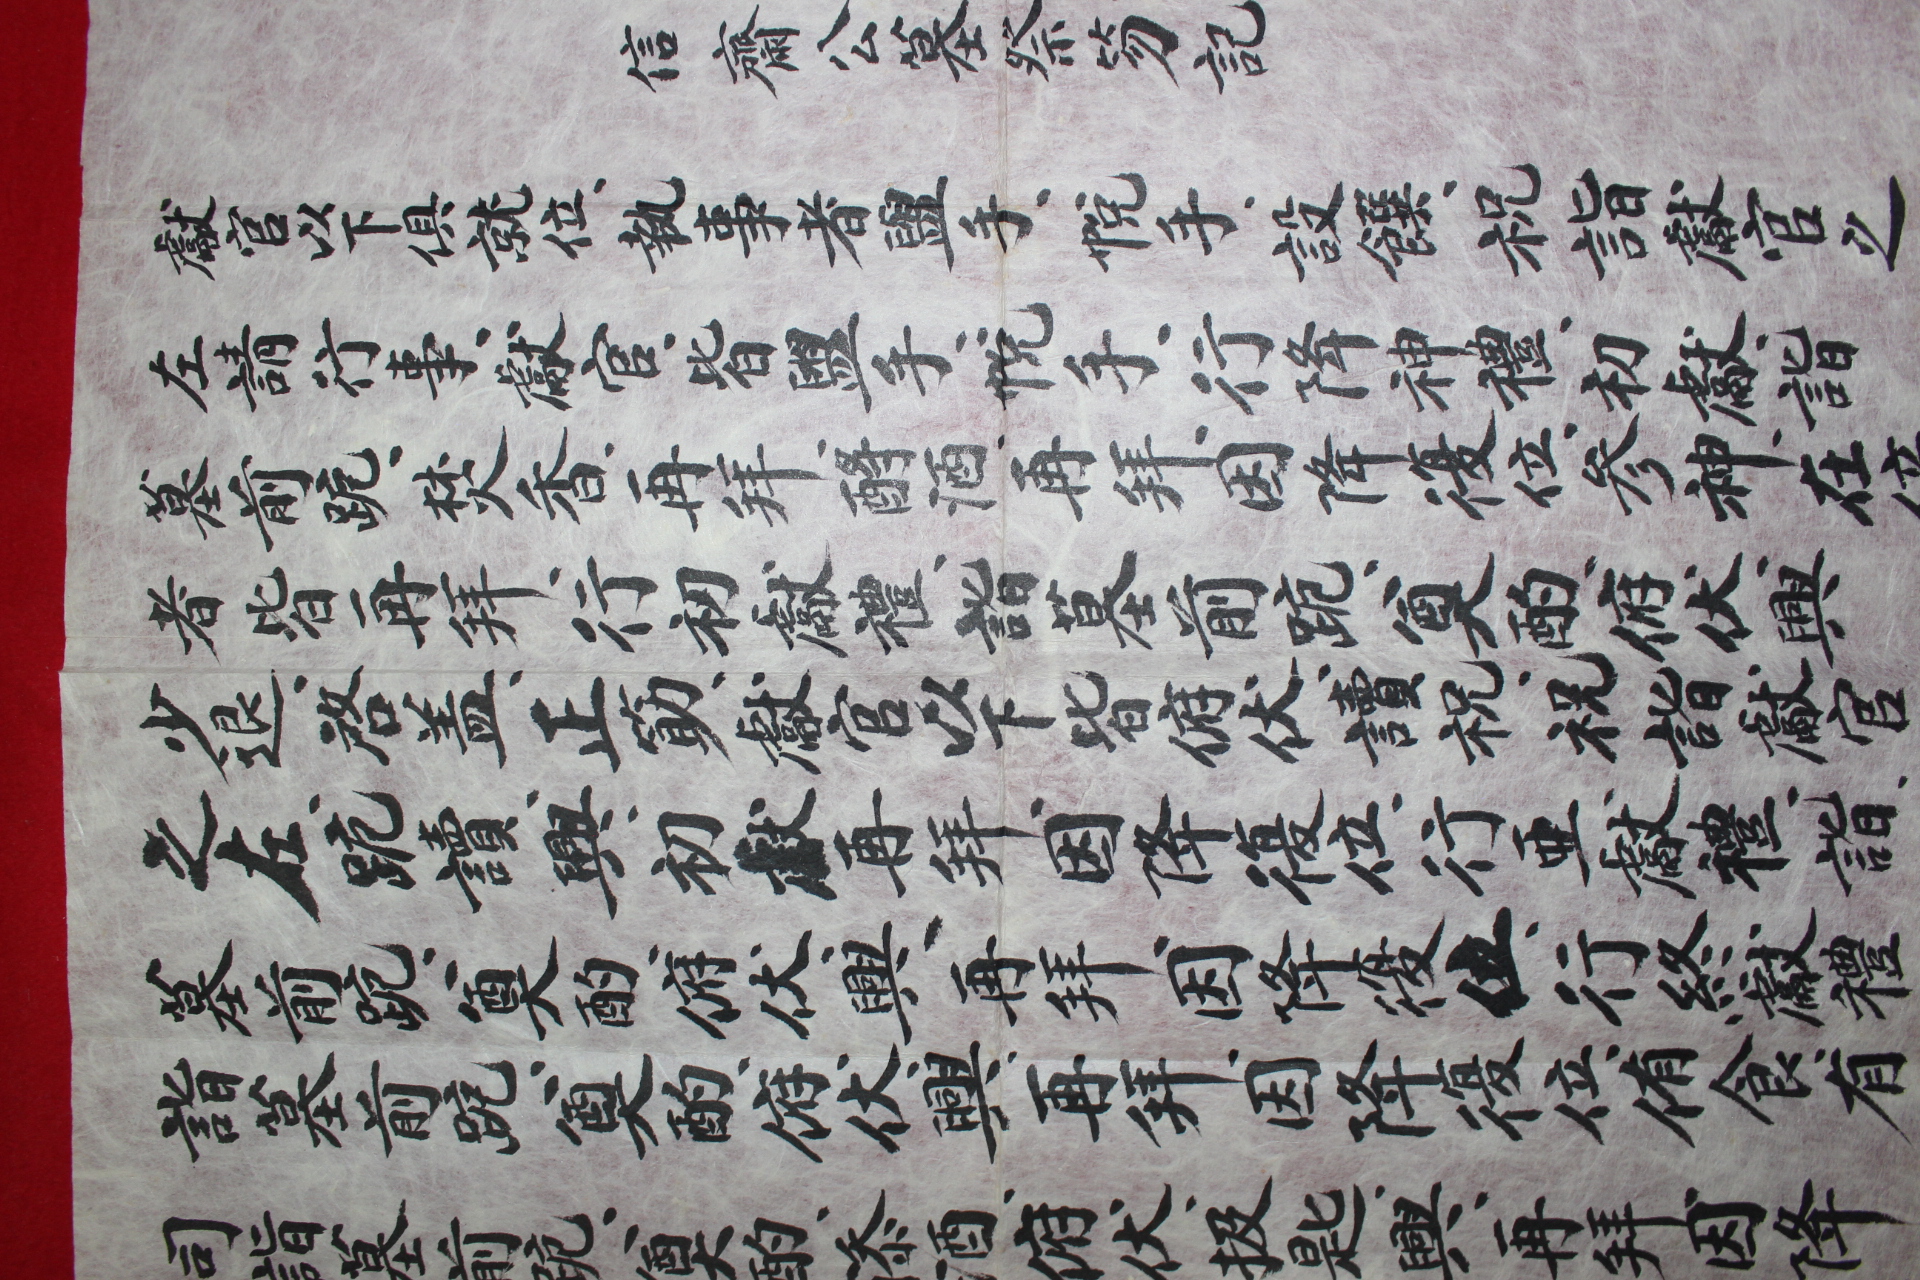 信齋公墓祭笏記
獻官以下俱就位、執事者盥手、帨手、設饌、祝詣獻官之
左請行事、獻官皆盥手、帨手、行降神禮、初獻詣
墓前跪、焚香、再拜、酹酒、再拜、因降復位、參神、在位
者皆再拜、行初獻禮、詣墓前跪、奠酌、俯伏、興
少退、啓盖、上筯、獻官以下皆俯伏、讀祝、祝詣獻官
之左、跪讀、興、初獻再拜、因降復位、行亞獻禮、詣
墓前跪、奠酌、俯伏、興、再拜、因降復位、行終獻禮
詣墓前跪、奠酌、俯伏、興、再拜、因降復位、侑食、有
司詣墓前跪、奠酌、添酒、俯伏、扱匙、興、再拜、因降